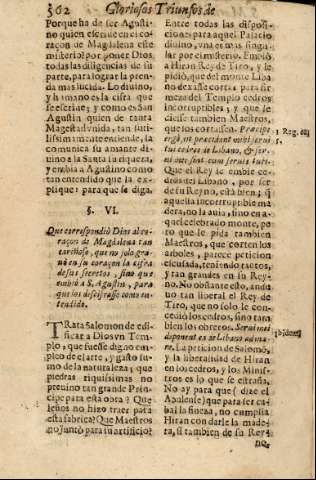 502 Gloriosos Triunfos de
Porque ha de ser Agusti-
no quien escriue en el co-
raçon de Magdalena este
misterio? por poner Dios,
todas las diligencias de su
parte, para lograr la pren-
da mas lucida. Lo diuino,
y humano es la cifra que
le escriue; y como es San
Agustin quien de tanta
Magestad vnida, tan futi-
lissimamente entiende, la
comunica su amante di-
uino à la Santa su riqueza,
y embia à Agustino como
tan entendido que la ex-
plique: para que se diga.
§. VI.
Que correspondiò Dios al co-
raçon de Magdalena tan
cariñoso, que no solo gra-
uò en su coraçon la cifra
de sus secretos, sino que
embiò à S. Agustin, para
que los descifrasse como en-
tendido.
TRata Salomon de edi-
ficar à Dios vn Tem-
plo, que fuesse digno em-
pleo de el arte, y gasto su-
mo de la naturaleza; que
piedras riquissimas no
preuino tan grande Prin-
cipe para esta obra? Que
leños no hizo traer para
esta fabrica? Que Maestros
no juntò para su artificio?
Entre todas las disposi-
ciones para aquel Palacio
diuino, vna es mas singu-
lar por el misterio. Embiò
à Hiran Rey de Tiro, y le
pidiò, que del monte Liba
no dexasse cortar para fir
meza del Templo cedros
incorruptibles, y que le
diesse tambien Maestros,
que los cortassen. Præcipe
ergò, vt præcidant mihi serui
tui cedros de Libano, & ser-
ui mei sint cum seruis tuis.
1 Reg.
5.
Que el Rey le embie ce-
dros del Libano, por ser
de su Reyno, està bien; q̃
aquella incorruptible ma
dera, no la auia, sino en a-
quel celebrado monte, pe-
ro que le pida tambien
Maestros, que corten los
arboles, parece peticion
escusada, teniendo tactos,
y tan grandes en su Rey-
no. No obstante esto, andu
uo tan liberal el Rey de
Tiro, que no solo le con-
cediò los cedros, sino tam
bien los obreros. Serui mei
deponent ea de Libano ad ma-
re. La peticion de Salomõ,
y la liberalidad de Hiran
en los cedros, y los Minis-
tros es lo que se estraña.
No ay para que (dize el
Apulense) que para ser ca-
bal la fineza, no cumplia
Hiran con darle la made-
ra, si tambien de su Rey-
no,